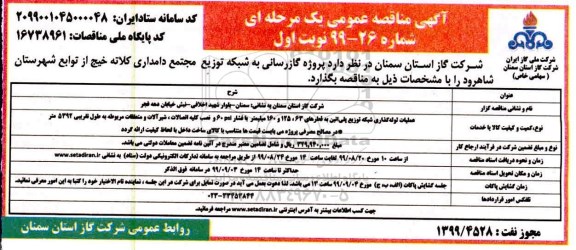 آگهی مناقصه عمومی یک مرحله ای
شماره ۲۶-۹۹ نوبت اول
کد سامانه ستادایران: ۲۰۹۹۰۰۱۰۴۵۰۰۰۰۴۸
کد پایگاه ملی مناقصات: ۱۶۷۳۸۹۶۱
شرکت ملی گاز ایران
(سهامی خاص)
شرکت گاز استان سمنان
شرکت گاز استان سمنان در نظر دارد پروژه گازرسانی به شبکه توزیع مجتمع دامداری کلاته خیج از توابع شهرستان
شاهرود را با مشخصات ذیل به مناقصه بگذارد.
عنوان
شرح
نام و نشانی مناقصه گزار
شرکت گاز استان سمنان به نشانی: سمنان-بلوار شهید اخلاقی-نبش خیابان دهه فجر
نوع، کمیت و کیفیت کالا یا خدمات
عملیات لوله‌گذاری شبکه توزیع پلی‌اتین به قطرهای ۶۳، ۱۲۵ و ۱۶۰ میلیمتر با فشار ۶۰psi و نصب کلیه اتصالات، شیرآلات و متعلقات مربوطه به طول تقریبی ۵۳۹۲ متر
*در مصالح مصرفی پروژه می بایست قیمت ها متناسب با کالای ساخت داخل با لحاظ کیفیت ارائه گردد
نوع و مبلغ تضمین شرکت در فرآیند ارجاع کار
ریال و شامل تضامین معتبر مندرج در آئین نامه تضمین معاملات دولتی می باشد.
زمان و نحوه دریافت اسناد مناقصه
از ساعت ۱۰ مورخ ۹۹/۰۸/۲۰ لغایت ساعت ۱۴ مورخ ۹۹/۰۸/۲۴ از طریق مراجعه به سامانه تدارکات الکترونیکی دولت (ستاد) به نشانی www.setadiran.ir
زمان و مکان تحویل اسناد مناقصه
حداکثر تا ساعت ۱۴ مورخ ۹۹/۰۹/۰۳ در سامانه فوق الذکر
زمان گشایش پاکات
جلسه گشایش پاکات (الف، ب، ج) مورخ ۹۹/۰۹/۰۴ ساعت ۱۴ می باشد. لذا دعوت بعمل می آید در صورت تمایل برای شرکت در این جلسه، نماینده تام الاختیار خود را کتبا به این امور معرفی نمائید.
تلفکس امور قراردادها
۰۲۳-۳۳۴۵۲۸۴۴
جهت کسب اطلاعات بیشتر به آدرس اینترنتی www.setadiran.ir مراجعه فرمائید.
۸۸۳۴۹۶۷۰-۵
مجوز نفت : ۱۳۹۹/۴۵۲۸
روابط عمومی شرکت گاز استان سمنان